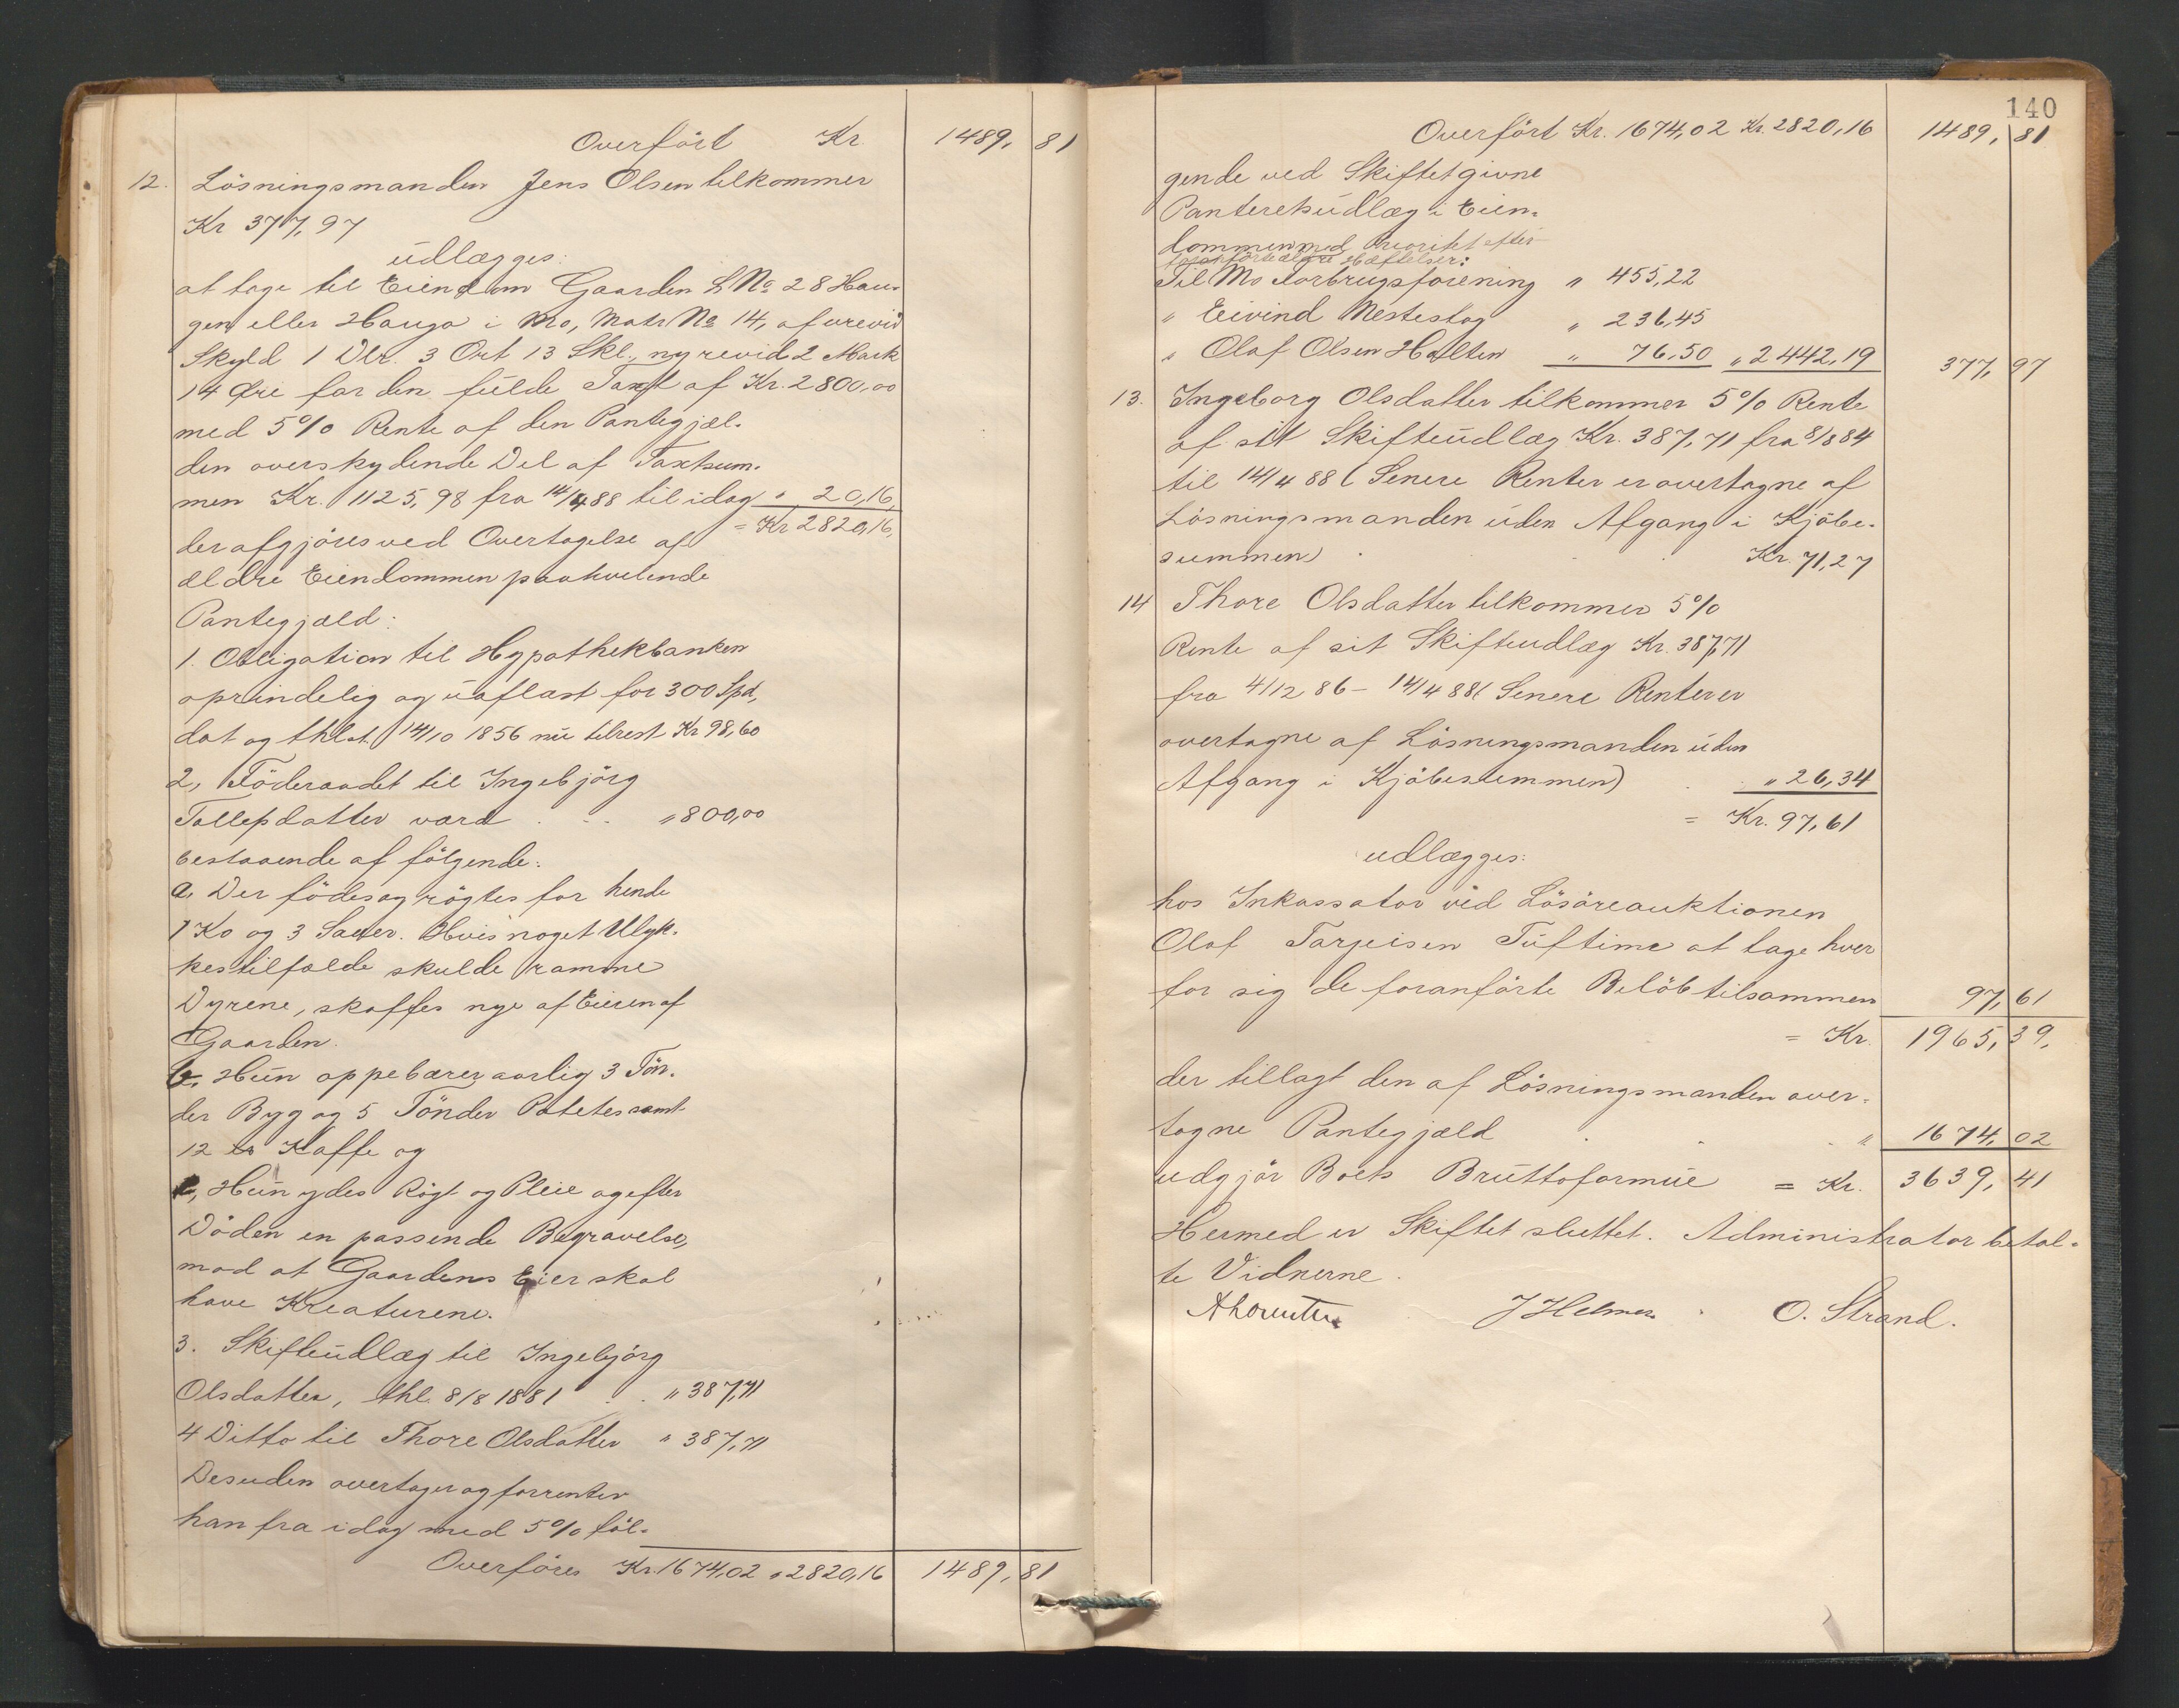 Overført Kr. 1489,81
12. Løsningsmanden Jens Olsen tilkommer
Kr 377,97
udlægges:
at tage til Eiendom Gaarden L No 28 Hau-
gen eller Hauga i Mo, Matr No 14, af urevid
Skyld 1 Dlr. 3 Ort 13 Skl., ny revid 2 Mark
14 Øre for den fulde Taxt af Kr. 2800,00
med 5% Rente af den Pantegjæl-
den overskydende Del af Taxtsum-
men Kr. 1125,98 fra 14/4 88 til idag " 20,16
der afgjøres ved Overtagelse af = Kr 2820,16,
ældre Eiendommen paahvilende
Pantegjæld:
1. Obligation til Hypothekbanken
oprindelig og uaflæst for 300 Spd,
dat og thlst. 14/10 1856 nu tilrest Kr 98,60
2, Føderaadet til Ingebjørg
Tollefsdatter værd . . . " 800,00
bestaaende af følgende:
a, Der fødes og røgtes for hende
1 Ko og 3 Sauer. Hvis noget Ulyk-
kestilfælde skulde ramme
Dyrene, skaffes nye af Eieren af
Gaarden.
b, Hun oppebærer aarlig 3 Tøn-
der Byg og 5 Tønder Poteter samt
12 ℔ Kaffe og
c, Hun ydes Røgt og Pleie og efter
Døden en passende Begravelse,
mod at Gaardens Eier skal
have Kreaturene.
3. Skifteudlæg til Ingebjørg
Olsdatter, thl. 8/8 1881 . . " 387,71
4 Ditto til Thore Olsdatter " 387,71
Desuden overtager og forrenter
han fra idag med 5% føl-
Overføres Kr. 1674,02 " 2820,16 1489,81
140
Overført Kr. 1674,02 Kr. 2820,16 1489,81
gende ved Skiftet givne
Panteretsudlæg i Eien-
dommen med Prioritet efter
foranførte ældre Hæftelser:
Til Mo Forbrugsforening " 455,22
" Eivind Nestestog " 236,45
" Olaf Olsen Holten " 76,50 " 2442,19 377,97
13. Ingeborg Olsdatter tilkommer 5% Rente
af sit Skifteudlæg Kr. 387,71 fra 8/8 84
til 14/4 88 (Senere Renter er overtagne af
Løsningsmanden uden Afgang i Kjøbe-
summen) . . . Kr. 71,27
14 Thore Olsdatter tilkommer 5%
Rente af sit Skifteudlæg Kr. 387,71
fra 4/12 86 - 14/4 88 (Senere Renter er
overtagne af Løsningsmanden uden
Afgang i Kjøbesummen) . . " 26,34
= Kr. 97,61
udlægges:
hos Inkassator ved Løsøreauktionen
Olaf Tarjeisen Tuftime at tage hver
for sig de foranførte Beløb tilsammen 97,61
= Kr. 1965,39,
der tillagt den af Løsningsmanden over-
tagne Pantegjæld . . . " 1674,02
udgjør Boets Bruttoformue = Kr. 3639,41
Hermed er Skiftet sluttet. Administrator betal-
te Vidnerne.
J Helmen O. Strand.